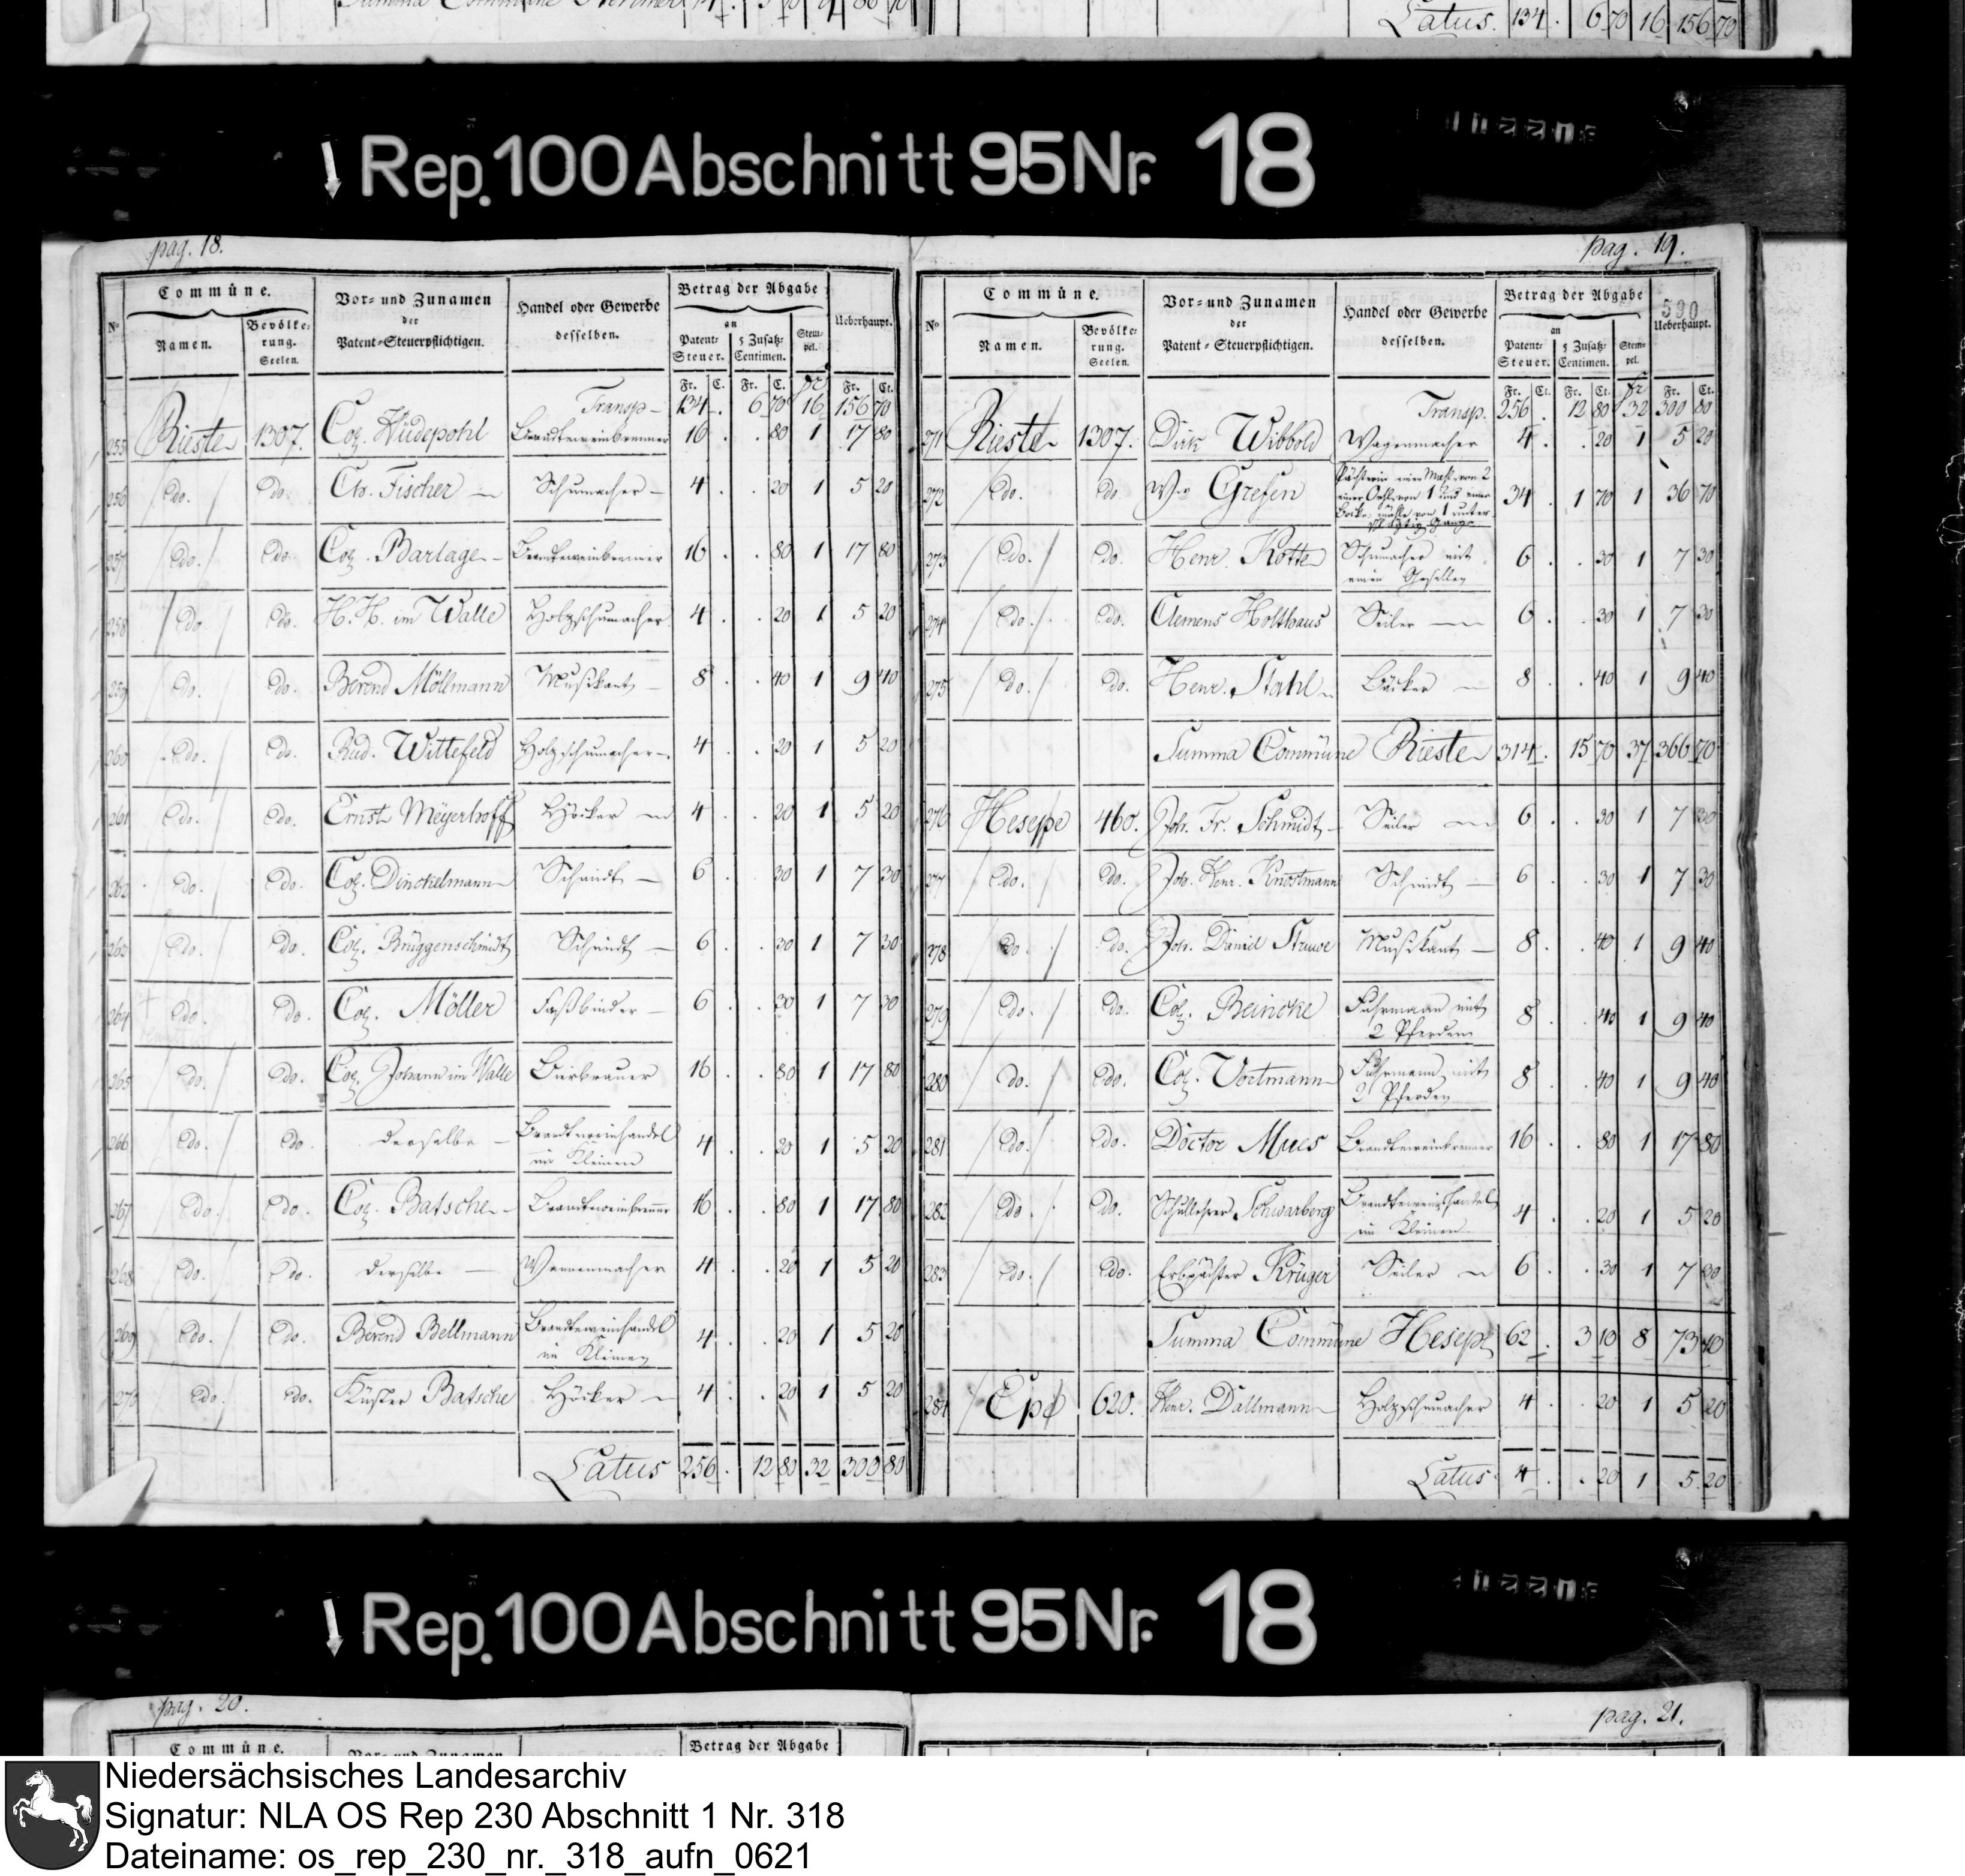 Summa Commune
Latus. 134 . 6 70 16 156 70
Rep. 100 Abschnitt 95 Nr. 18
pag. 18.
No Commüne. Vor- und Zunamen der Patent-Steuerpflichtigen. Handel oder Gewerbe desselben. Betrag der Abgabe Ueberhaupt.
Namen. Bevölkerung. Seelen. an Patent-Steuer. 5 Zusatz-Centimen. Stempel.
Fr. C. Fr. C. fr Fr. Ct.
Transp- 134 . 6 70 16 156 70
255 Rieste 1307. Col. Wüdepohl Brandteweinbrenner 16 . . 80 1 17 80
256 do. do. Ch. Fischer Schumacher 4 . . 20 1 5 20
257 do. do. Col. Barlage Brandteweinbrenner 16 . . 80 1 17 80
258 do. do. H. H. im Walle Holzschumacher 4 . . 20 1 5 20
259 do. do. Berend Möllmann Musikant 8 . . 40 1 9 40
260 do. do. Rud. Wittefeld Holzschumacher 4 . . 20 1 5 20
261 do. do. Ernst Meyerhoff Höcker 4 . . 20 1 5 20
262 do. do. Col. Dinckelmann Schmidt 6 . . 30 1 7 30
263 do. do. Col. Brüggenschmidt Schmidt 6 . . 30 1 7 30
264 do. do. Col. Möller Faßbinder 6 . . 30 1 7 30
265 do. do. Col. Johann im Walle Bierbrauer 16 . . 80 1 17 80
266 do. do. derselbe Brandteweinhandel im Kleinen 4 . . 20 1 5 20
267 do. do. Col. Batsche Brandteweinbrenner 16 . . 80 1 17 80
268 do. do. derselbe Wannenmacher 4 . . 20 1 5 20
269 do. do. Berend Bellmann Brandteweinhandel im Kleinen 4 . . 20 1 5 20
270 do. do. Küster Batsche Höcker 4 . . 20 1 5 20
Latus 256 . 12 80 32 300 80
pag. 19.
590
No Commüne. Vor- und Zunamen der Patent-Steuerpflichtigen. Handel oder Gewerbe desselben. Betrag der Abgabe Ueberhaupt.
Namen. Bevölkerung. Seelen. an Patent-Steuer. 5 Zusatz-Centimen. Stempel.
Fr. Ct. Fr. Ct. fr Fr. Ct.
Transp. 256 . 12 80 32 300 80
271 Rieste 1307. Dirk Wibbold Wagenmacher 4 . . 20 1 5 20
272 do. do. Wwe Grefen Pächterin einer Mahl von 2 einer Oehl von 1 und einer Bockemühle von 1 unterschlägtig. Gange 34 . 1 70 1 36 70
273 do. do. Henr. Kotte Schumacher mit einen Gesellen 6 . . 30 1 7 30
274 do. do. Clemens Holthaus Seiler 6 . . 30 1 7 30
275 do. do. Henr. Stahl Bäcker 8 . . 40 1 9 40
Summa Commüne Rieste 314 . 15 70 37 366 70
276 Hesepe 460. Joh. Fr. Schmidt Seiler 6 . . 30 1 7 30
277 do. do. Joh. Henr. Knostmann Schmidt 6 . . 30 1 7 30
278 do. do. Joh. Daniel Struve Musikant 8 . . 40 1 9 40
279 do. do. Col. Beincke Fuhrmann mit 2 Pferden 8 . . 40 1 9 40
280 do. do. Col. Vortmann Fuhrmann mit 2 Pferden 8 . . 40 1 9 40
281 do. do. Doctor Mues Brandteweinbrenner 16 . . 80 1 17 80
282 do. do. Schullehrer Schwarberg Brandteweinhandel im Kleinen 4 . . 20 1 5 20
283 do. do. Erbpächter Krüger Seiler 6 . . 30 1 7 30
Summa Commüne Hesepe 62 . 3 10 8 73 10
284 Epe 620. Henr. Dallmann Holzschumacher 4 . . 20 1 5 20
Latus 4 . . 20 1 5 20
Rep. 100 Abschnitt 95 Nr. 18
pag. 20.
Commüne. Betrag der Abgabe
pag. 21.
Niedersächsisches Landesarchiv
Signatur: NLA OS Rep 230 Abschnitt 1 Nr. 318
Dateiname: os_rep_230_nr._318_aufn_0621